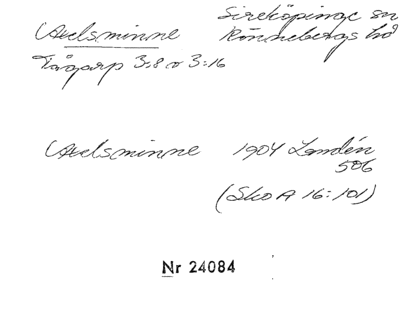 Axelsminne Sireköpinge sn
Rönnebergs hd
Tågarp 3:8 o 3:16
Axelsminne 1904 Landén
506
(Sko A 16:101)
Nr 24084